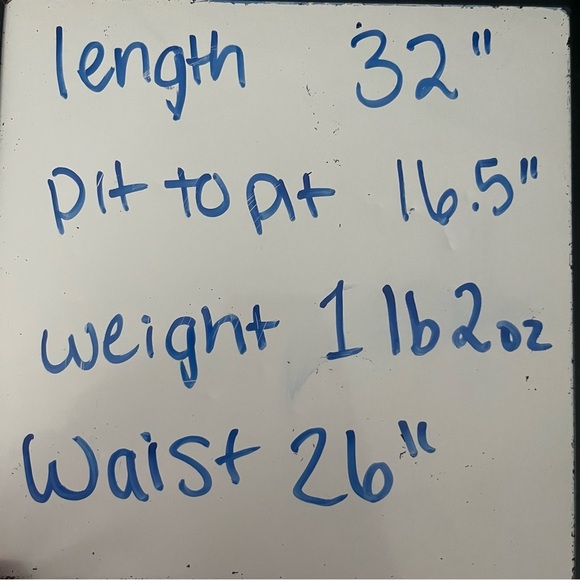 length 32"
pit to pit 16.5"
weight 1 lb 2oz
Waist 26"